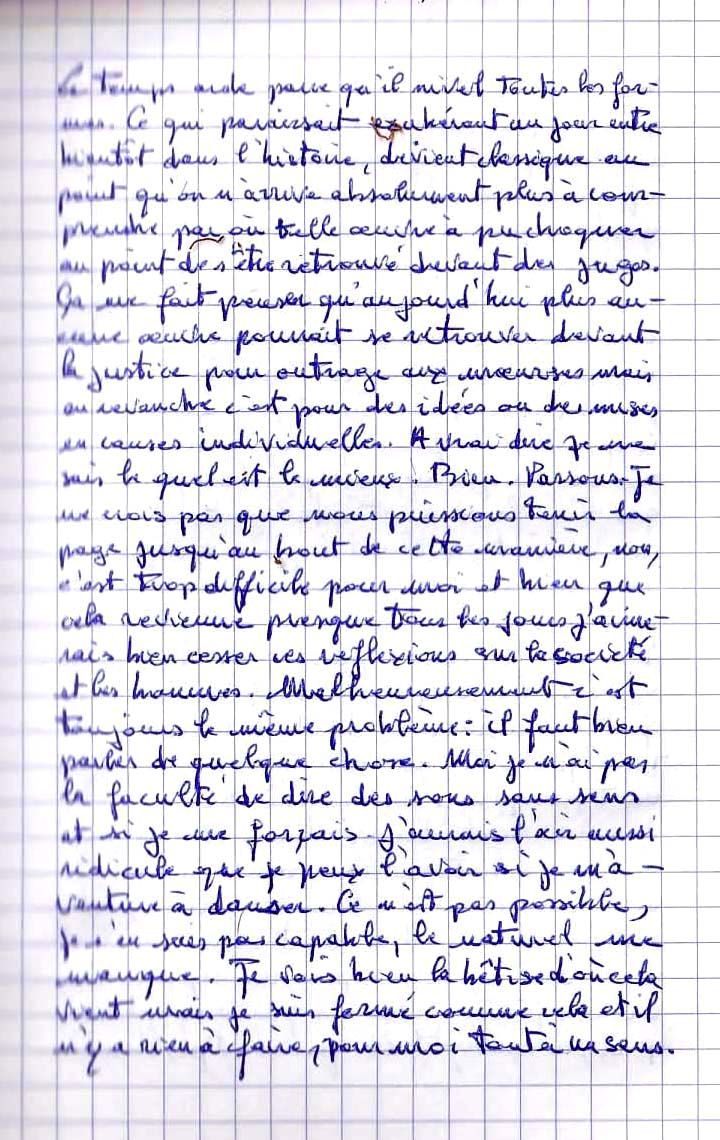 Le temps aide parce qu'il nivel toutes les for-
mes. Ce qui paraissait exubérant un jour entre
bientôt dans l'histoire, devient classique au
point qu'on n'arrive absolument plus à com-
prendre par où telle œuvre à pu choquer
au point de s'être retrouvé devant des juges.
Ça me fait penser qu'aujourd'hui plus au-
cune œuvre pourrait se retrouver devant
la justice pour outrage aux mœurses mais
en revanche c'est pour des idées ou des mises
en causes individuelles. A vrai dire je ne
sais le quel est le mieux. Bien. Passons. Je
ne crois pas que nous puissions tenir la
page jusqu'au bout de cette manière, non,
c'est trop difficile pour moi et bien que
cela revienne presque tous les jours j'aime-
rais bien cesser ces reflexions sur la société
et les hommes. Malheureusement c'est
toujours le même problème: il faut bien
parler de quelque chose. Moi je n'ai pas
la faculté de dire des sons sans sens
et si je me forçais j'aurais l'air aussi
ridicule que je peux l'avoir si je m'a-
venture à danser. Ce n'est pas possible,
je n'en suis pas capable, le naturel me
manque. Je vois bien la bêtise d'où cela
vient mais je suis formé comme cela et il
n'y a rien à faire, pour moi tout à un sens.